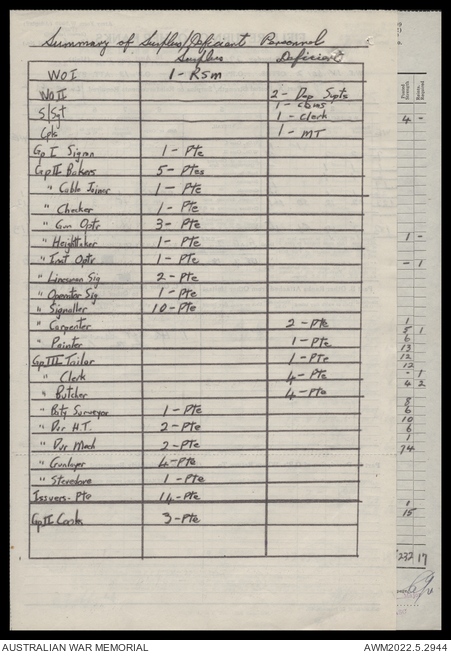 Summary of Surplus/Deficient Personnel
Surplus Deficient
WO I 1 - RSM
WO II 2 - Dep Supts
S/Sgt 1 - clerk
Cpls 1 - MT
Gp I Sigmn 1 - Pte
Gp II Bakers 5 - Ptes
" Cable Joiner 1 - Pte
" Checker 1 - Pte
" Gun Optr 3 - Pte
" Heighttaker 1 - Pte
" Inst Optr 1 - Pte
" Linesman Sig 2 - Pte
" Operator Sig 1 - Pte
" Signaller 10 - Pte
" Carpenter 2 - Pte
" Painter 1 - Pte
Gp III Tailor 1 - Pte
" Clerk 4 - Pte
" Butcher 4 - Pte
" Baty Surveyor 1 - Pte
" Dvr H.T. 2 - Pte
" Dvr Mech 2 - Pte
" Gunlayer 4 - Pte
" Stevedore 1 - Pte
Issuers - Pte 14 - Pte
Gp II Cooks 3 - Pte
4 -
1 -
- 1
1
5 1
6
13
12
12
- 1
4 2
8
6
10
6
1
74
1
15
232 17
AUSTRALIAN WAR MEMORIAL AWM2022.5.2944